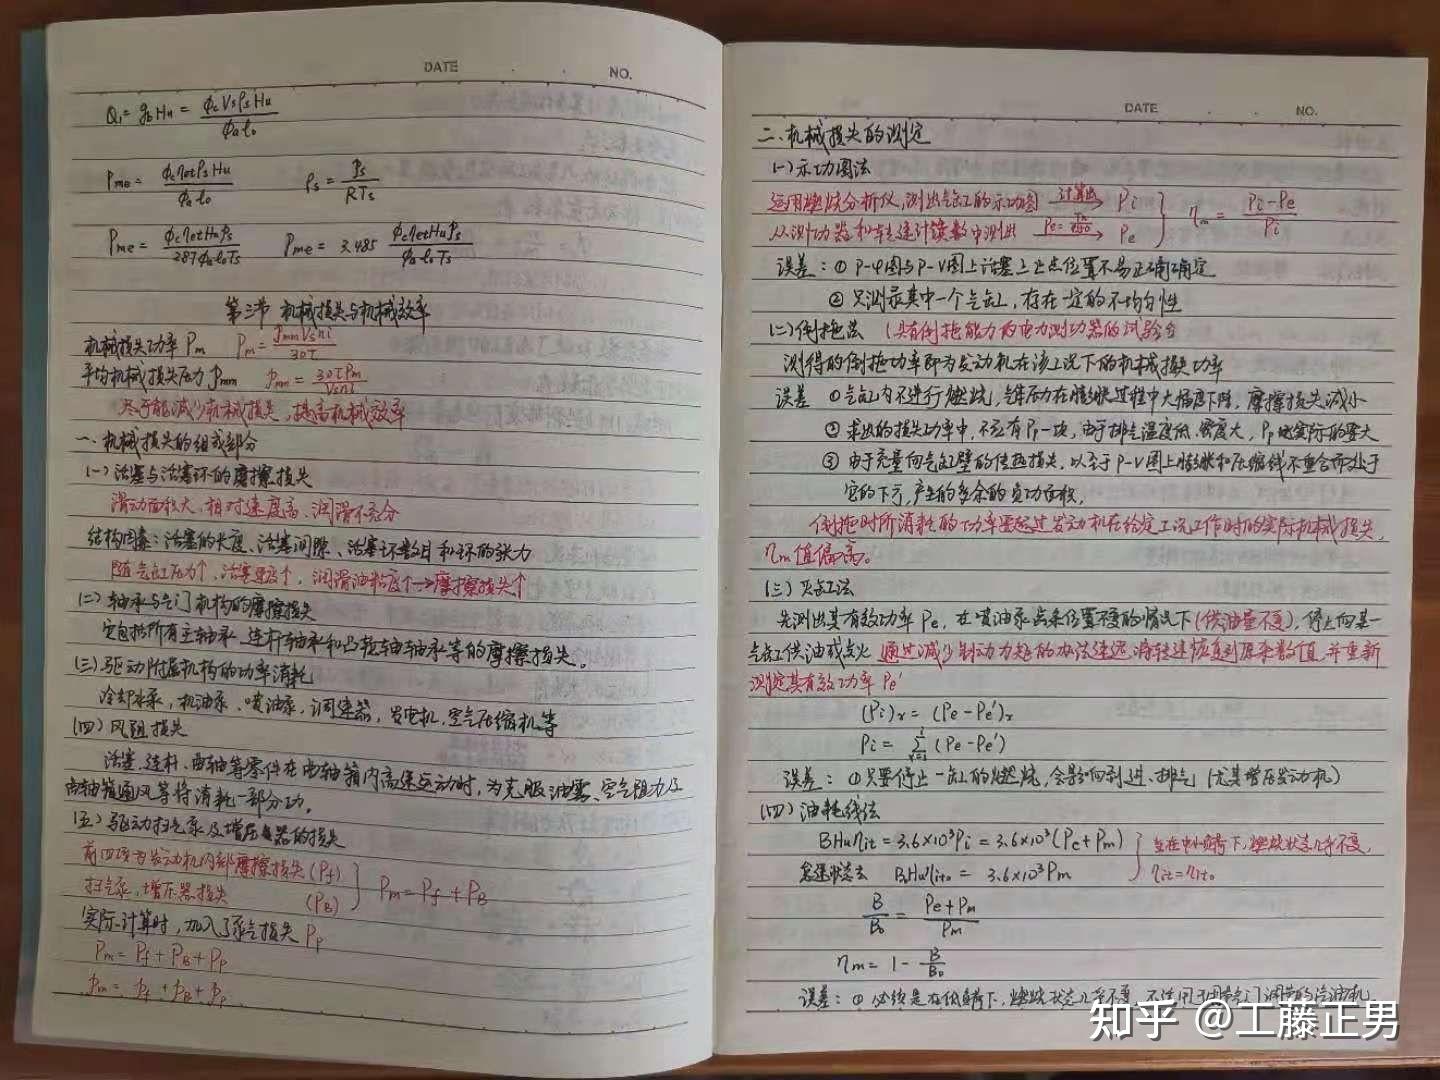 DATE NO.
Q₁ = g_b Hu = φc Vs ρs Hu / φa l₀
Pme = φc ηet ρs Hu / φa l₀   ρs = Ps / RTs
Pme = φc ηet Hu Ps / 287 φa l₀ Ts   Pme = 3.485 φc ηet Hu Ps / φa l₀ Ts
第三节 机械损失与机械效率
机械损失功率 Pm   Pm = Pmm Vs n i / 30τ
平均机械损失压力 Pmm   Pmm = 30τPm / Vs n i
尽可能减少机械损失,提高机械效率
一、机械损失的组成部分
(一)活塞与活塞环的摩擦损失
滑动面积大,相对速度高、润滑不充分
结构因素:活塞的长度、活塞间隙、活塞环数目和环的张力
随气缸压力↑、活塞速度↑,润滑油粘度↑→摩擦损失↑
(二)轴承与气门机构的摩擦损失
它包括所有主轴承、连杆轴承和凸轮轴轴承等的摩擦损失。
(三)驱动附属机构的功率消耗
冷却水泵,机油泵、喷油泵、调速器,发电机,空气压缩机等
(四)风阻损失
活塞、连杆、曲轴等零件在曲轴箱内高速运动时,为克服油雾、空气阻力及
曲轴箱通风等将消耗一部分功。
(五)驱动扫气泵及增压器的损失
前四项为发动机内部摩擦损失(Pf)
扫气泵,增压器损失 (PB) } Pm = Pf + PB
实际计算时,加入了泵气损失 Pp
Pm = Pf + PB + Pp
Pm = Pf + PB + Pp
DATE NO.
二、机械损失的测定
(一)示功图法
运用燃烧分析仪,测出气缸的示功图 计算出→ Pi
从测功器和转速计读数中测出 → Pe } ηm = Pi-Pe / Pi
误差:① P-φ图与P-V图上活塞上止点位置不易正确确定
② 只测录其中一个气缸,存在一定的不均匀性
(二)倒拖法 (具有倒拖能力的电力测功器的试验台
测得的倒拖功率即为发动机在该工况下的机械损失功率
误差 ①气缸内不进行燃烧,气体压力在膨胀过程中大幅度下降,摩擦损失减小
② 求出的损失功率中,不应有Pp一块,由于排气温度低、密度大,Pp比实际的要大
③ 由于充量向气缸壁的传热损失,以至于P-V图上膨胀和压缩线不重合而处于
它的下方,产生的多余的负功面积,
倒拖时所消耗的功率要超过发动机在给定工况工作时的实际机械损失,
ηm值偏高。
(三)灭缸法
先测出其有效功率Pe,在喷油泵齿条位置不变的情况下(供油量不变),停止向某一
气缸供油或点火 通过减少制动力矩的办法迅速将转速恢复到原来数值,并重新
测定其有效功率Pe′
(Pi)x = (Pe-Pe′)x
Pi = Σ (Pe-Pe′)
误差:①只要停止一缸的燃烧,会影响到进、排气(尤其增压发动机)
(四)油耗线法
BHuηit = 3.6×10³Pi = 3.6×10³(Pe+Pm)
怠速状态 B₀Huηit₀ = 3.6×10³Pm } 当在中小负荷下,燃烧状态几乎不变, ηit=ηit₀
B/B₀ = Pe+Pm / Pm
ηm = 1 - B/B₀
误差:①必须是在低负荷下,燃烧状态几乎不变 不适用于用节气门调节的汽油机
知乎 @工藤正男